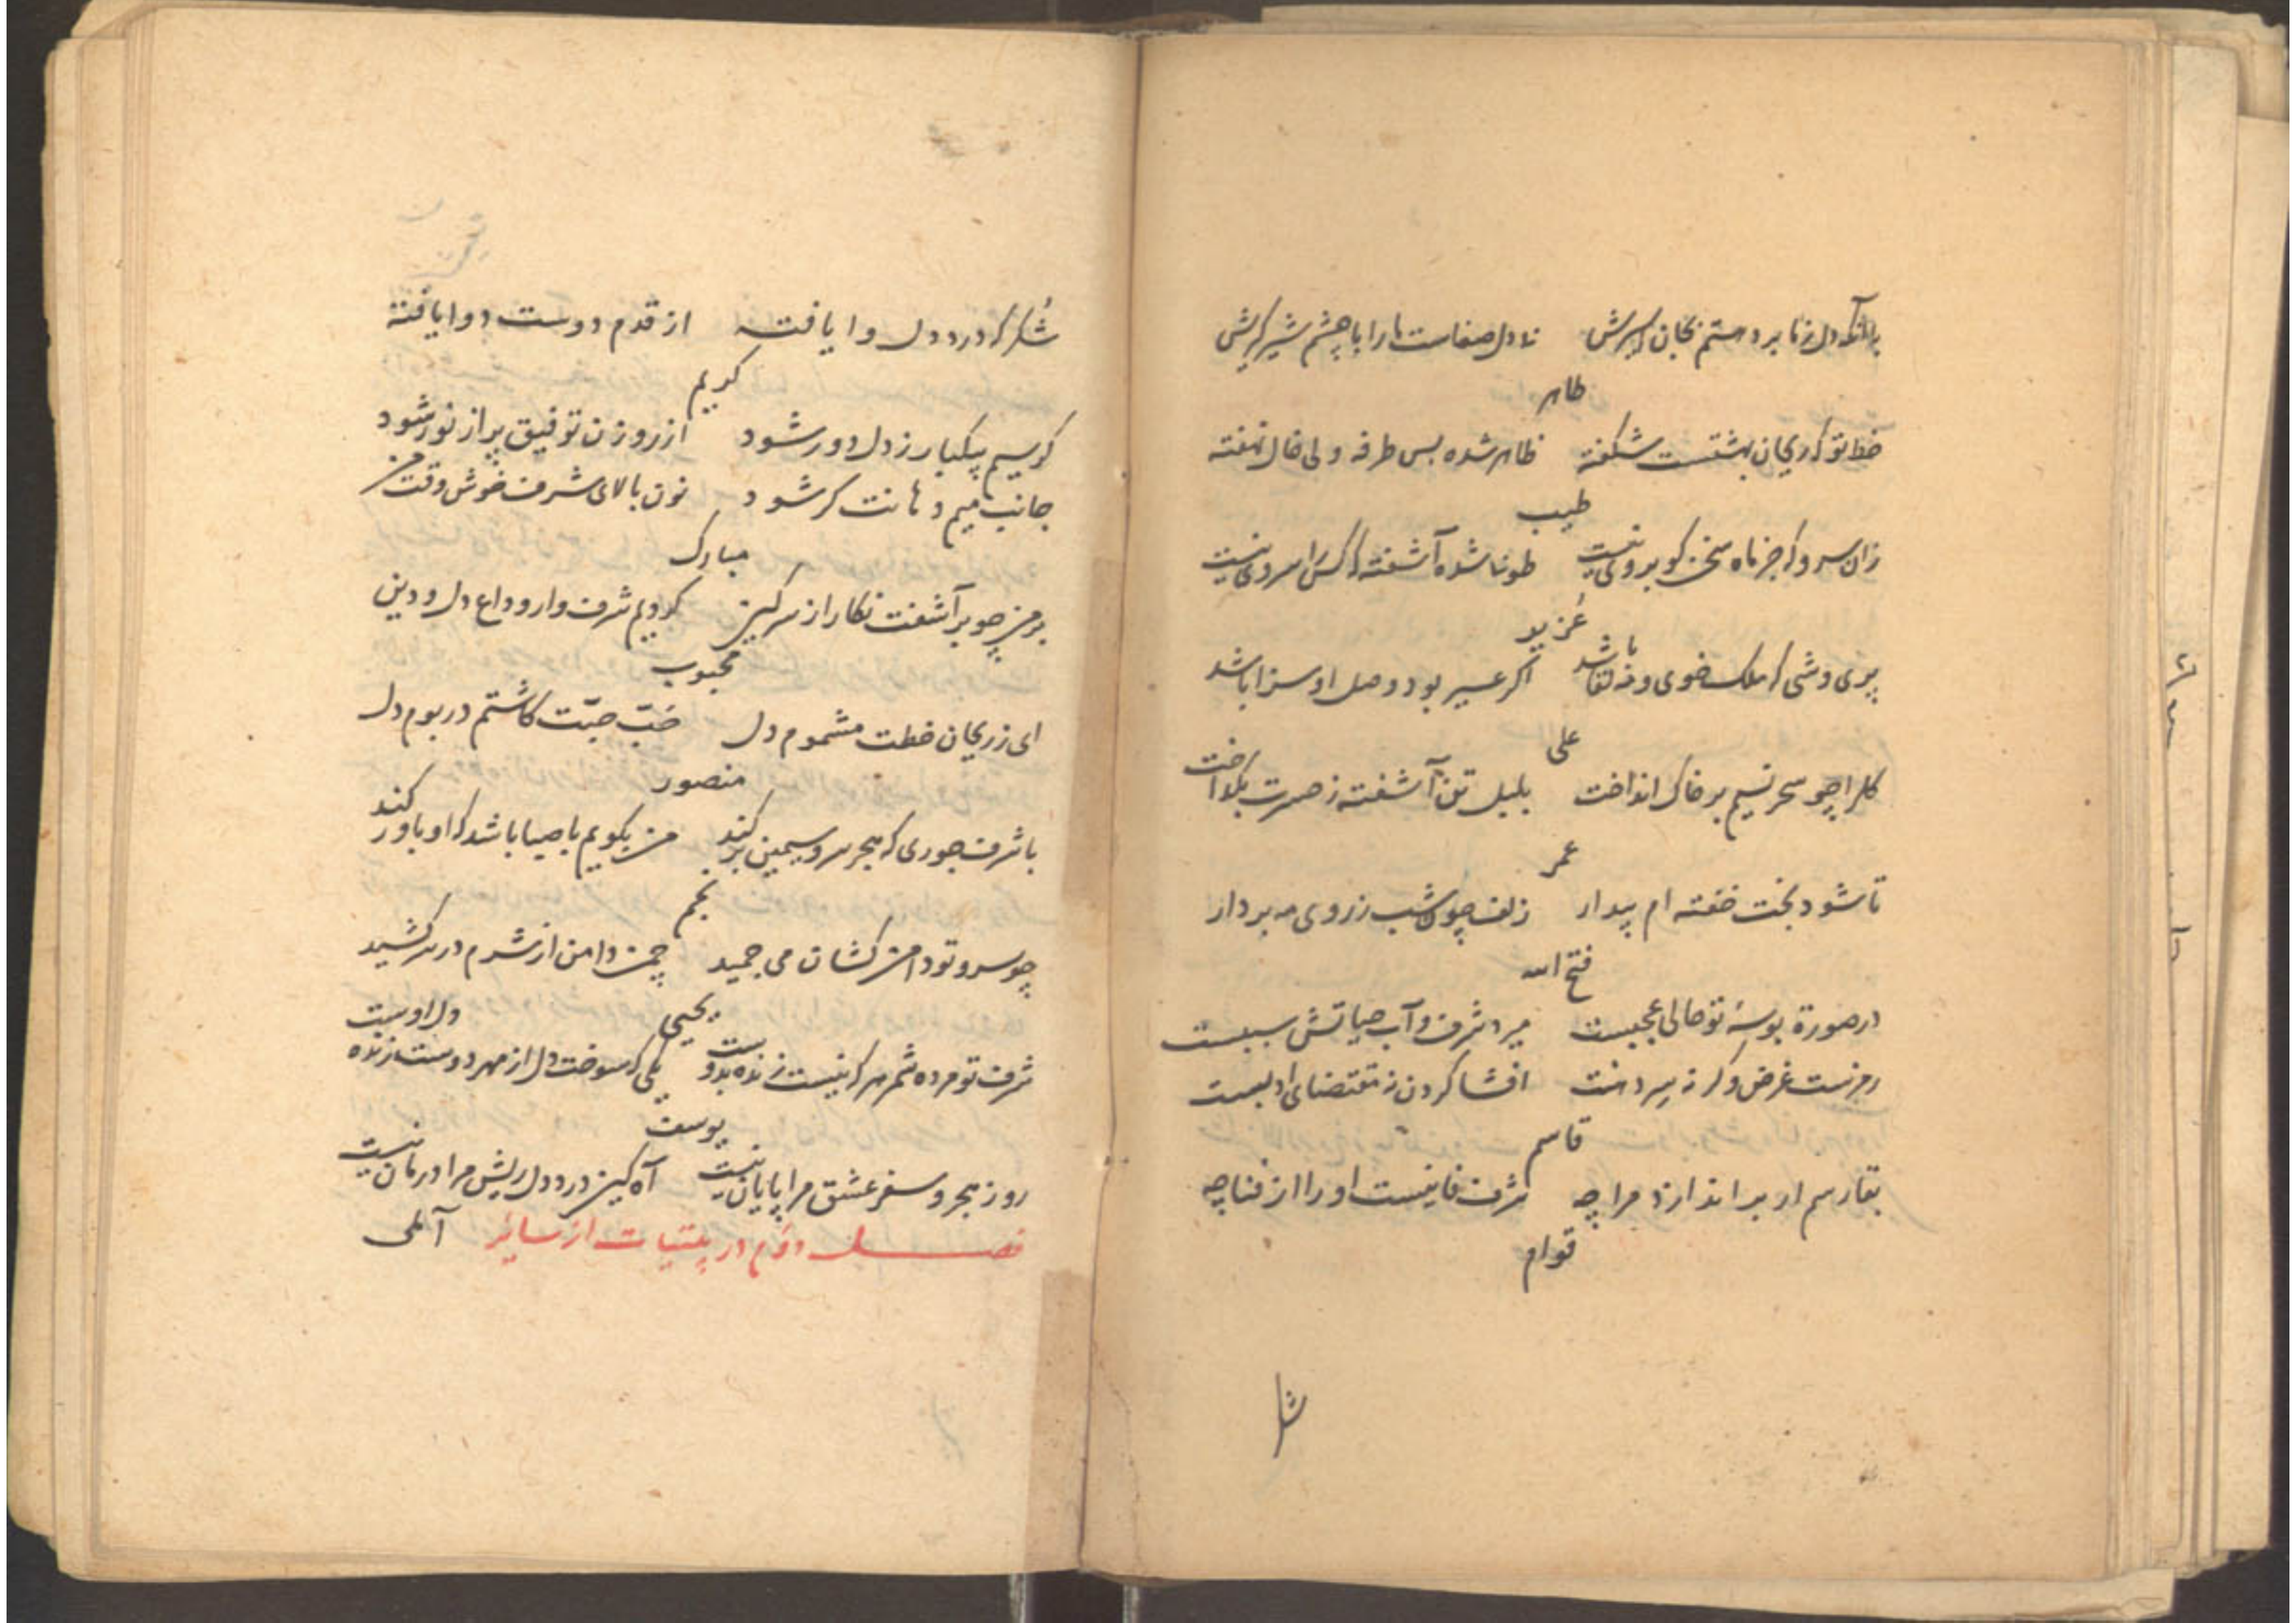 با آنکه دل زما برد رستم بجان اسیرش نه دل صفاست ما را با چشم شیرگیرش
طاهر
خط تو که ریحان بهشتست شکفته ظاهر شده بس طرفه ولی خال نهفته
طیب
زان سرو که جز ماه سخن کو بروی نیست طوبا شده آشفته که کس را سر وی نیست
عزیز
پری وشی که ملک خوی و مه لقا باشد اکر عسیر بود وصل او سزا باشد
علی
کلرا چو سحر نسیم بر خاک انداخت بلبل تن آشفته ز حسرت بکداخت
عمر
تا شود بخت خفته ام بیدار زلف چون شب ز روی مه بردار
فتح الله
در صورة بوسهٔ تو حالی عجبیست میرد شرف و آب حیاتش سببست
رمزست غرض وکر نه سر دهنت افشا کردن نه مقتضای ادبست
قاسم
بقا رسم ار بر اندازد مرا چه شرف فانیست او را از فنا چه
قوام
شکر
شکر که درد دل وا یافته از قدم دوست دوا یافته
کریم
کر سیم بیکبار ز دل دور شود از روزن توفیق پر از نور شود
جانب میم دهانت کر شود نون بالای شرف خوش وقت من
مبارک
بر من چو برآشفت نکار از سر کین کردیم شرف وار وداع دل و دین
محبوب
ای ز ریحان خطت مشموم دل حبّ حبّت کاشتم در بوم دل
منصور
با شرف جوری که هجر سرو سیمین بر کند من بکویم با صبا باشد که او باور کند
نجم
چو سرو تو دامن کشان می چمید چمن دامن از شرم در سر کشید
یحیی
شرف تو مرده شمر هر که نیست زنده بدوست یکی که سوخت دل از مهر دوست زنده دل اوست
یوسف
روز هجر و سفر عشق مرا پایان نیست آه کین درد دل ریش مرا درمان نیست
فصل دوم در بیتیات از سایر آملی